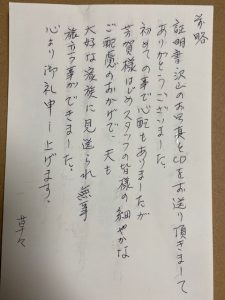 前略
証明書、沢山のお写真とCDをお送り頂きまして
ありがとうございました。
初めての事で心配もありましたが
芳賀様はじめスタッフの皆様の細やかな
ご配慮のおかげで、天も
大好な家族に見送られ無事
旅立つ事ができました。
心より御礼申し上げます。
草々